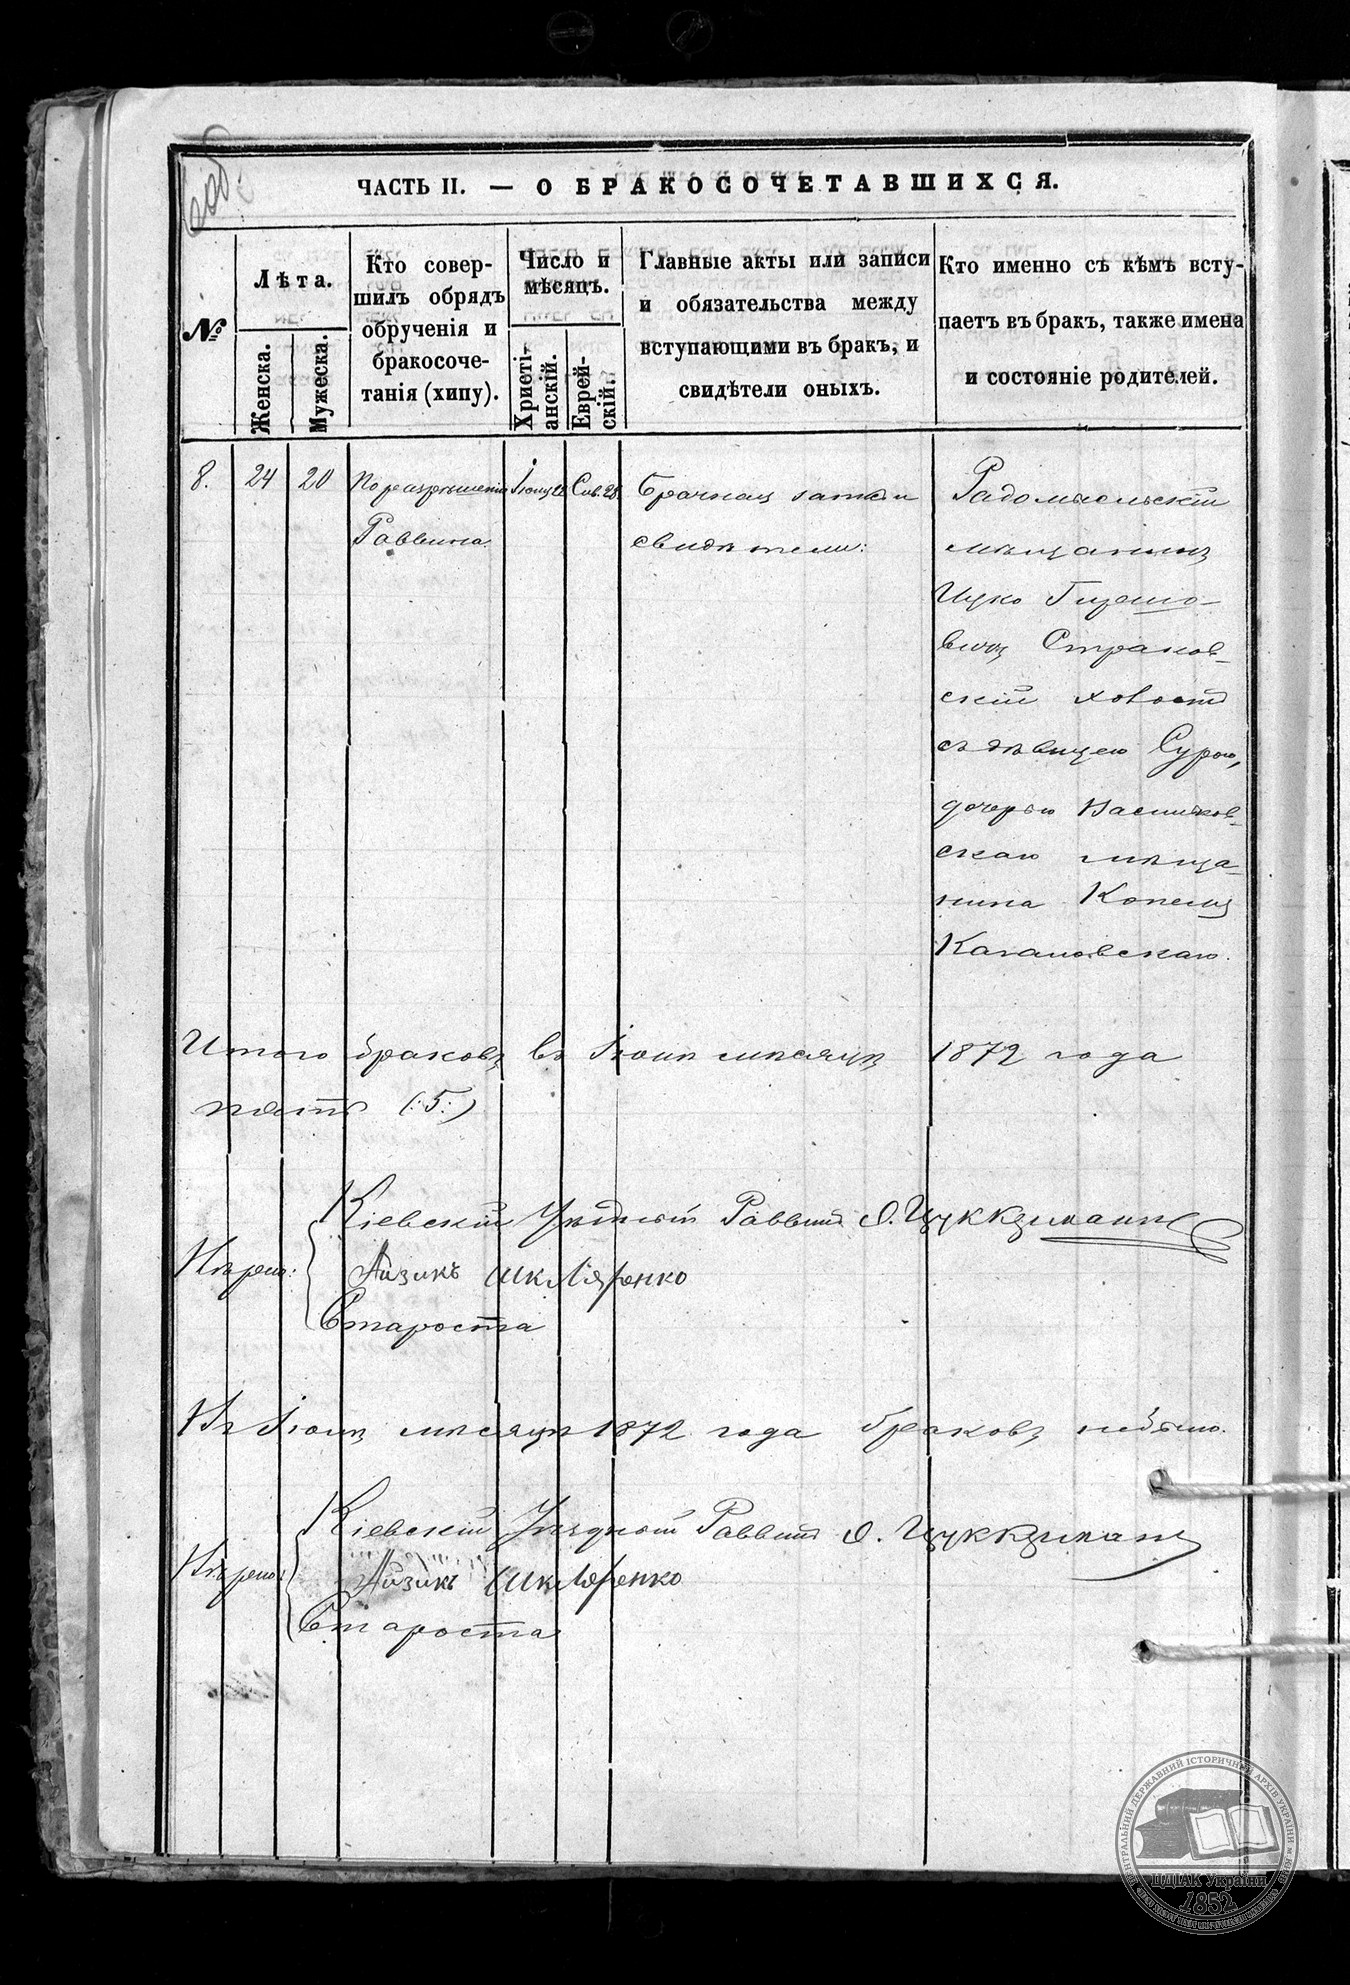 ЧАСТЬ II. — О БРАКОСОЧЕТАВШИХСЯ.
№
Лѣта.
Женска.
Мужеска.
Кто совер-
шилъ обрядъ
обрученія и
бракосоче-
танія (хипу).
Число и
мѣсяцъ.
Христі-
анскій.
Еврей-
скій.
Главные акты или записи
и обязательства между
вступающими въ бракъ, и
свидѣтели оныхъ.
Кто именно съ кѣмъ всту-
паетъ въ бракъ, также имена
и состояніе родителей.
8.
24
20
По разрѣшенію
Раввина.
Сив. 28.
Брачная запись и
свидѣтели:
Радомысльскій
мѣщанинъ
Ицко
вичъ
скій холостъ
съ дѣвицею Сурою,
дочерью Васильков-
скаго мѣща-
нина Копеля
Кагановскаго.
Итого браковъ въ Іюнѣ мѣсяцѣ 1872 года
пять (:5:)
Вѣрно:
Кіевскій Уѣздный Раввинъ О. Цуккерманъ
Айзикъ Шкляренко
Староста
Въ Іюлѣ мѣсяцѣ 1872 года браковъ небыло.
Вѣрно:
Кіевскій Уѣздный Раввинъ О. Цуккерманъ
Айзикъ Шкляренко
Староста
ЦЕНТРАЛЬНИЙ ДЕРЖАВНИЙ ІСТОРИЧНИЙ АРХІВ УКРАЇНИ
ЦДІАК України
1852